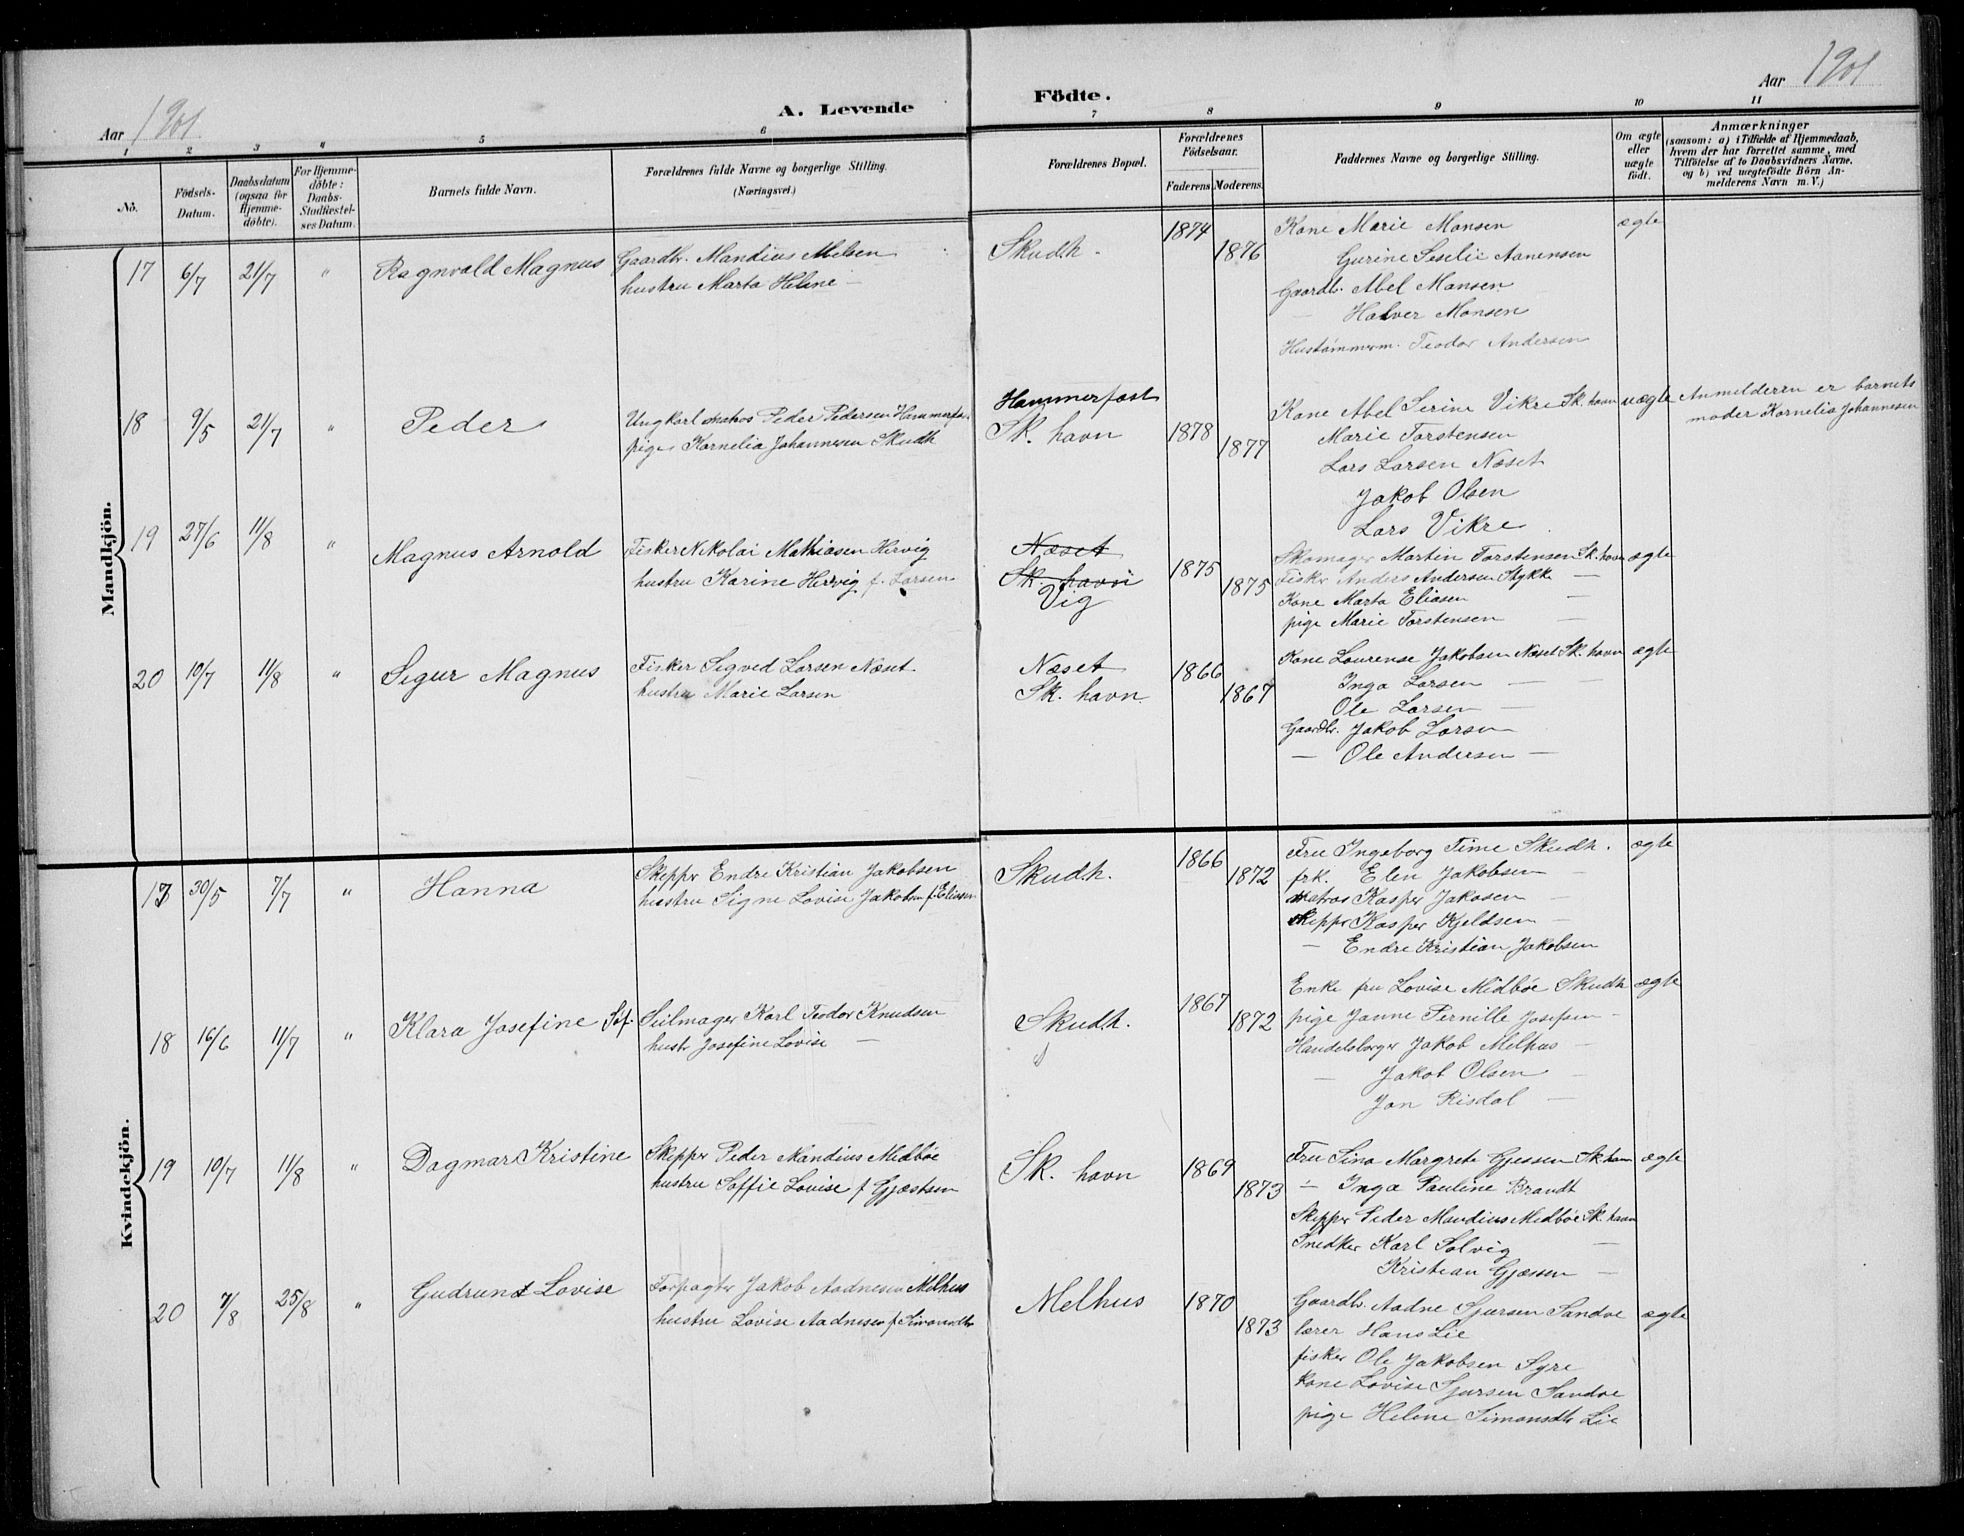 Aar 1901
A. Levende
Födte.
Aar 1901
1 2 3 4 5 6 7 8 9 10 11
No.
Födsels-Datum.
Daabsdatum (ogsaa for Hjemmedöbte).
For Hjemmedöbte: Daabs-Stadfæstelses Datum.
Barnets fulde Navn.
Forældrenes fulde Navne og borgerlige Stilling. (Næringsvei.)
Forældrenes Bopæl.
Forældrenes Födselsaar.
Faderens. Moderens.
Faddernes Navne og borgerlige Stilling.
Om ægte eller uægte födt.
Anmærkninger
(saasom: a) i Tilfælde af Hjemmedaab, hvem der har forrettet samme, med Tilföielse af to Daabsvidners Navne, og b) ved uægtefödte Börn Anmelderens Navn m. V.)
Mandkjön.
17 6/7 21/7 " Ragnvald Magnus
Gaardbr. Mandius Melsen
hustru Marta Helene —
Skudh.
1874 1876
Kone Marie Monsen
Gurine Seselie Aanensen
Gaardbr. Abel Monsen
— Halver Monsen
Hustømmerm. Teodor Andersen
ægte
18 9/5 21/7 " Peder
Ungkarl matros Peder Pedersen Hammerfest
pige Kornelia Johannesen Skudh
Hammerfest
Sk. havn
1878 1877
Kone Abel Serine Vikre Sk. havn
Marie Torstensen
Lars Larsen Næset
Jakob Olsen
Lars Vikre
uægte
Anmelderen er barnets
moder Kornelia Johannesen
19 27/6 11/8 " Magnus Arnold
Fisker Nikolai Mathiasen Hervig
hustru Karine Hervig f. Larsen
Næset
Sk. havn
Vig
1875 1875
Skomager Martin Torstensen Sk. havn
Fisker Anders Andersen Stykke —
Kone Marta Eliasen —
pige Marie Torstensen —
ægte
20 10/7 11/8 " Sigur Magnus
Fisker Sigved Larsen Næset.
hustru Marie Larsen
Næset
Sk. havn.
1866 1867
Kone Laurense Jakobsen Næset Sk. havn
Inga Larsen — —
Ole Larsen —
Gaardbr. Jakob Larsen
— Ole Andersen —
ægte
Kvindekjön.
17 30/5 7/7 " Hanna
Skipper Endre Kristian Jakobsen
hustru Signe Lovise Jakobsen f. Eliasen
Skudh.
1866 1872
Fru Ingeborg Time Skudh.
frk. Elen Jakobsen —
matros Kasper Jakosen —
skipper Kasper Kjeldsen —
— Endre Kristian Jakobsen
ægte
18 16/6 11/7 " Klara Josefine Sof.
Seilmager Karl Teodor Knudsen
hustr Josefine Lovise —
Skudh.
1867 1872
Enke fru Lovise Midbøe Skudh
pige Janne Pernille Josefsen —
Handelsborger Jakob Melhus —
— Jakob Olsen —
Jan Risdal —
ægte
19 10/7 11/8 " Dagmar Kristine
Skipper Peder Mandius Midbøe
hustru Soffie Lovise f Gjøstsen
Sk. havn
1869 1873
Fru Sina Margrete Gjessen Sk havn
— Inga Pauline Brandt
Skipper Peder Mandius Midbøe Sk. havn
Snedker Karl Solvig —
Kristian Gjøssen —
ægte
20 7/8 25/8 " Gudrund Lovise
Forpagter Jakob Aadnesen Melhus
hustru Lovise Aadnesen f Simonsdtr
Melhus
1870 1873
Gaardbr. Aadne Sjursen Sandve
lærer Hans Lie
fisker Ole Jakobsen Syre
Kone Lovise Sjursen Sandve
pige Helene Simonsdtr Lie
ægte